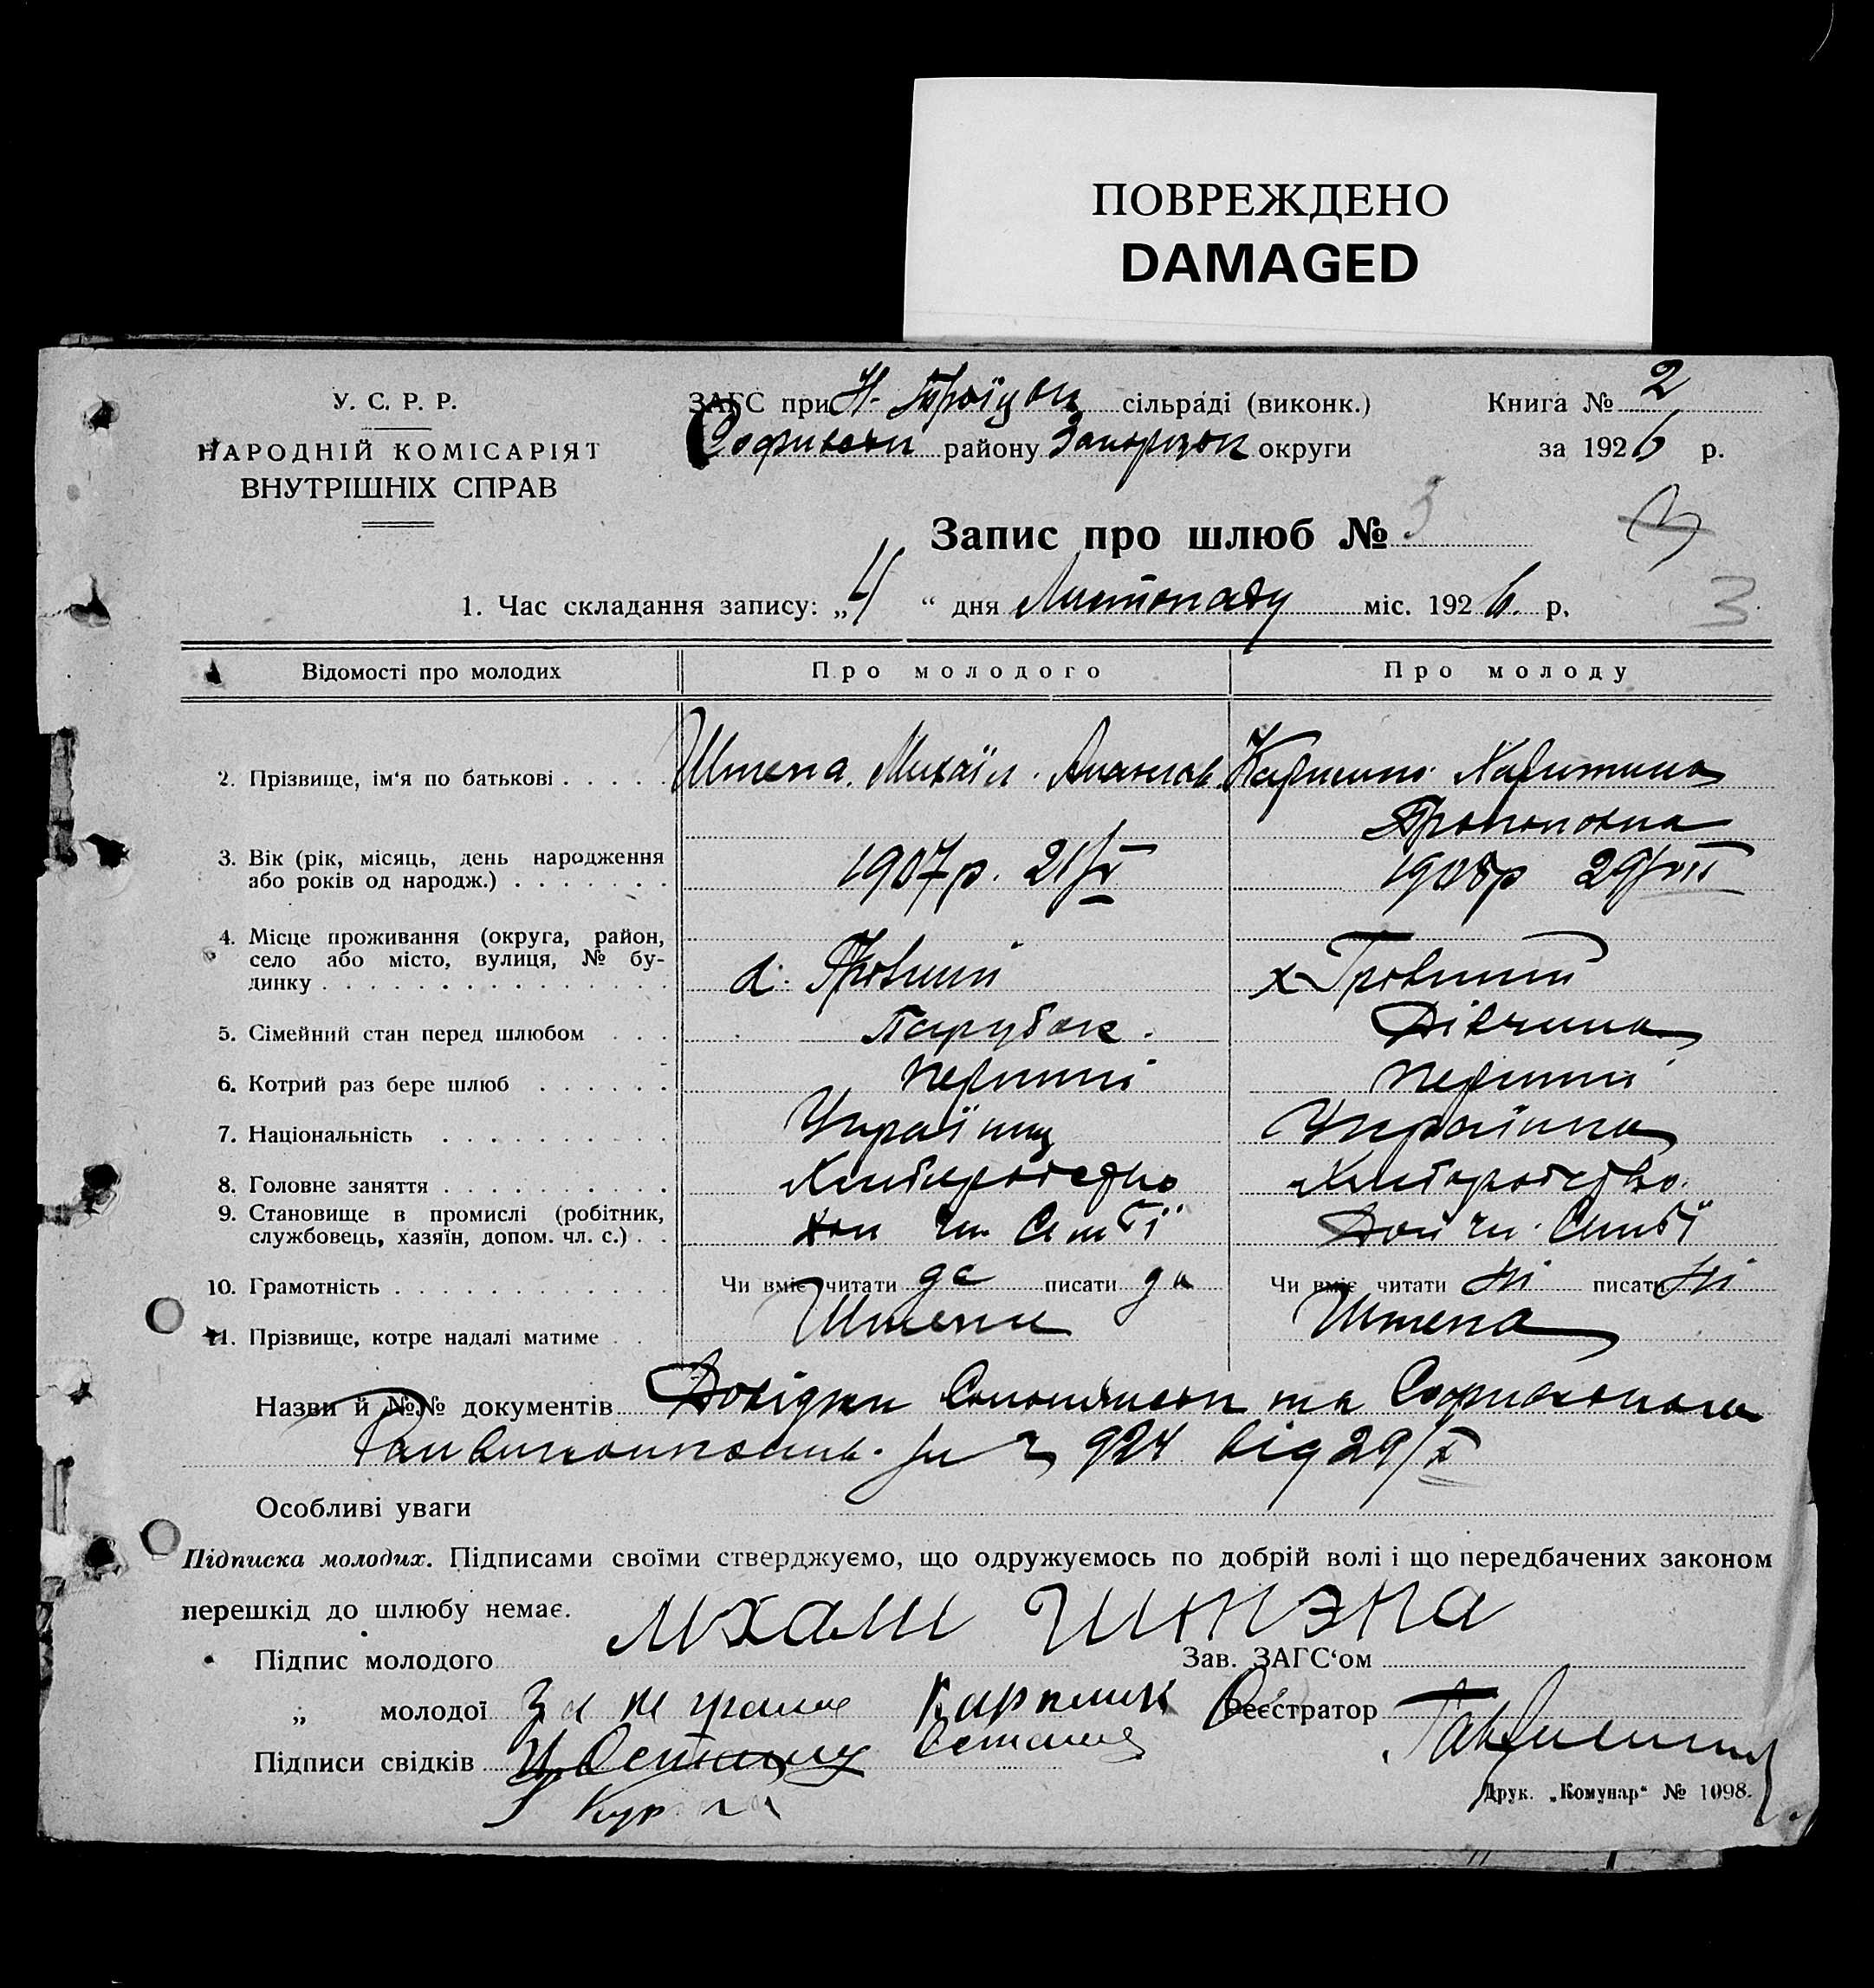 ПОВРЕЖДЕНО
DAMAGED
У. С. Р. Р.
НАРОДНІЙ КОМІСАРІЯТ
ВНУТРІШНІХ СПРАВ
ЗАГС при Н. Троїцьк сільраді (виконк.)
району округи
Книга № 2
за 1926 р.
Запис про шлюб № 3
3
1. Час складання запису: „4“ дня Листопаду міс. 1926. р.
3
Відомості про молодих
Про молодого
Про молоду
2. Прізвище, ім'я по батькові . . . . .
Штепа. Михаїл.
Харитина
Прокоповна
3. Вік (рік, місяць, день народження
або років од народж.) . . . . . . .
1907р. 21/
190 р 29/VII
4. Місце проживання (округа, район,
село або місто, вулиця, № бу-
динку . . . . . . . . . . . . . . . .
5. Сімейний стан перед шлюбом . . .
Парубок.
Дівчина
6. Котрий раз бере шлюб . . . . . .
перший
перший
7. Національність . . . . . . . . . .
Українець
Українка
8. Головне заняття . . . . . . . . . .
Хліборобство
Хліборобство.
9. Становище в промислі (робітник,
службовець, хазяїн, допом. чл. с.) . .
чл. Сімьї
Доп чл. Сімьї
10. Грамотність . . . . . . . . . . . .
Чи вміє читати да писати да
Чи вміє читати Ні писати Ні
11. Прізвище, котре надалі матиме . .
Штепа
Штепа
Назви й №№ документів Довідки та
за № 924 від 29/X
Особливі уваги
Підписка молодих. Підписами своїми стверджуємо, що одружуємось по добрій волі і що передбачених законом
перешкід до шлюбу немає.
Підпис молодого
Зав. ЗАГС'ом
„ молодої За
Реєстратор
Підписи свідків
Друк. „Комунар“ № 1098.